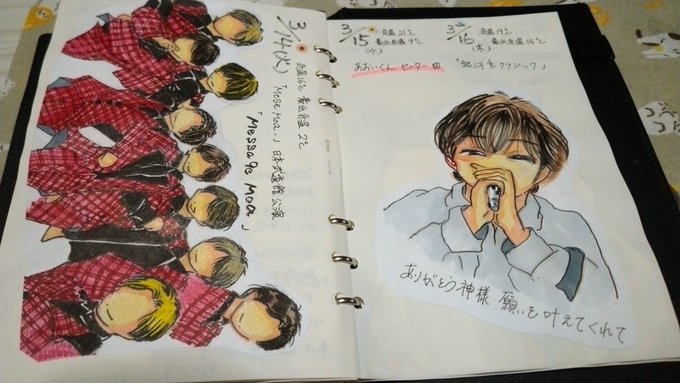 3/14(火) 気温16℃ 最低気温 2℃
「Mose Moa.」日本武道館公演
「Message Moa」
3/15 気温21℃
最低気温9℃
(水)
あおいくん センター曲
3/16 気温19℃
最低気温14℃
(木)
「銀河系クラシック」
ありがとう神様 願いを叶えてくれて